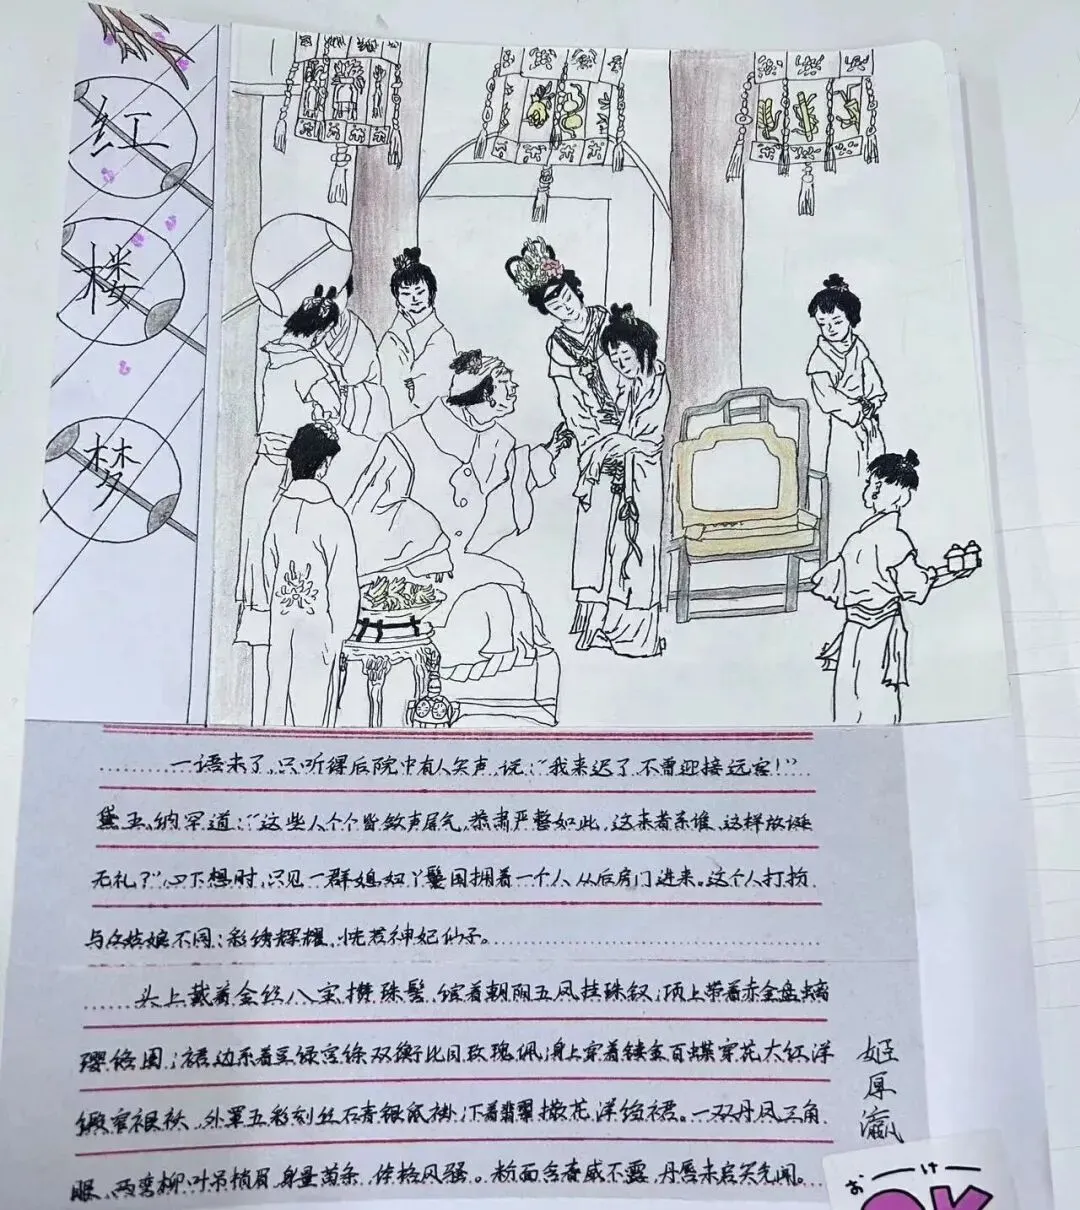 红
楼
梦
一语未了,只听得后院中有人笑声,说:“我来迟了,不曾迎接远客!”
黛玉纳罕道:“这些人个个皆敛声屏气,恭肃严整如此,这来者系谁,这样放诞
无礼?”心下想时,只见一群媳妇丫鬟围拥着一个人从后房门进来。这个人打扮
与众姑娘不同:彩绣辉耀,恍若神妃仙子。
头上戴着金丝八宝攒珠髻,绾着朝阳五凤挂珠钗;项上带着赤金盘螭
璎珞圈;裙边系着豆绿宫绦双衡比目玫瑰佩;身上穿着镂金百蝶穿花大红洋
缎窄裉袄,外罩五彩刻丝石青银鼠褂;下着翡翠撒花洋绉裙。一双丹凤三角
眼,两弯柳叶吊梢眉,身量苗条,体格风骚。粉面含春威不露,丹唇未启笑先闻。
姬厚瀛
おーけー
OK